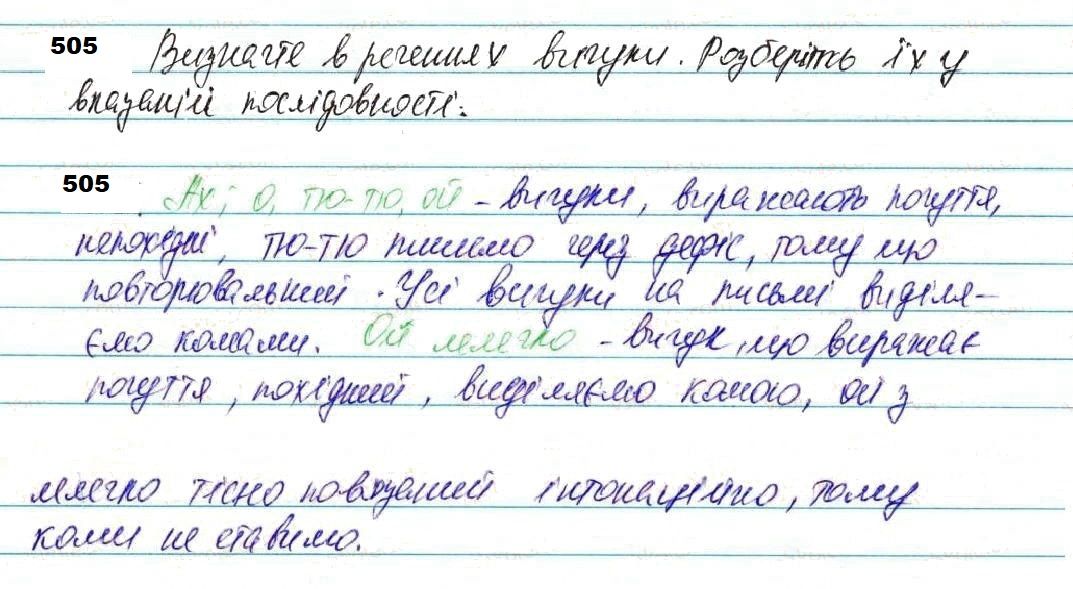 505 Визначте в реченнях вигуки. Розберіть їх у
вказаній послідовності.
505 Ах, о, тю-тю, ой - вигуки, виражають почуття,
непохідні, тю-тю пишемо через дефіс, тому що
повторювальний. Усі вигуки на письмі виділя-
ємо комами. Ой лелечко - вигук, що виражає
почуття, похідний, виділяємо комою, ой з
лелечко тісно повязаний інтонаційно, тому
коми не ставимо.